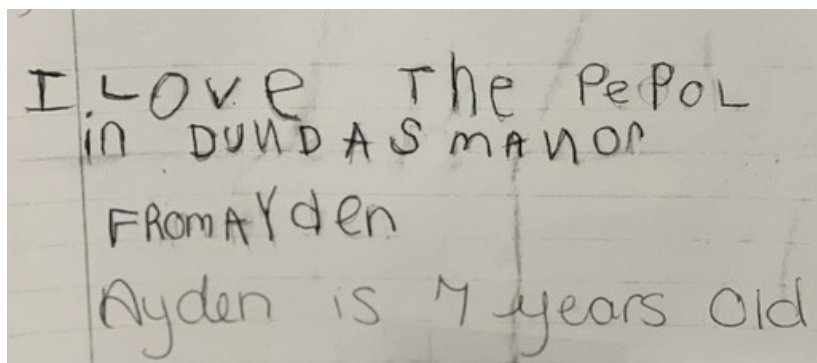 I LOVe The PePOL
in DUNDAS mANOr
FROM AYden
Ayden is 7 years old